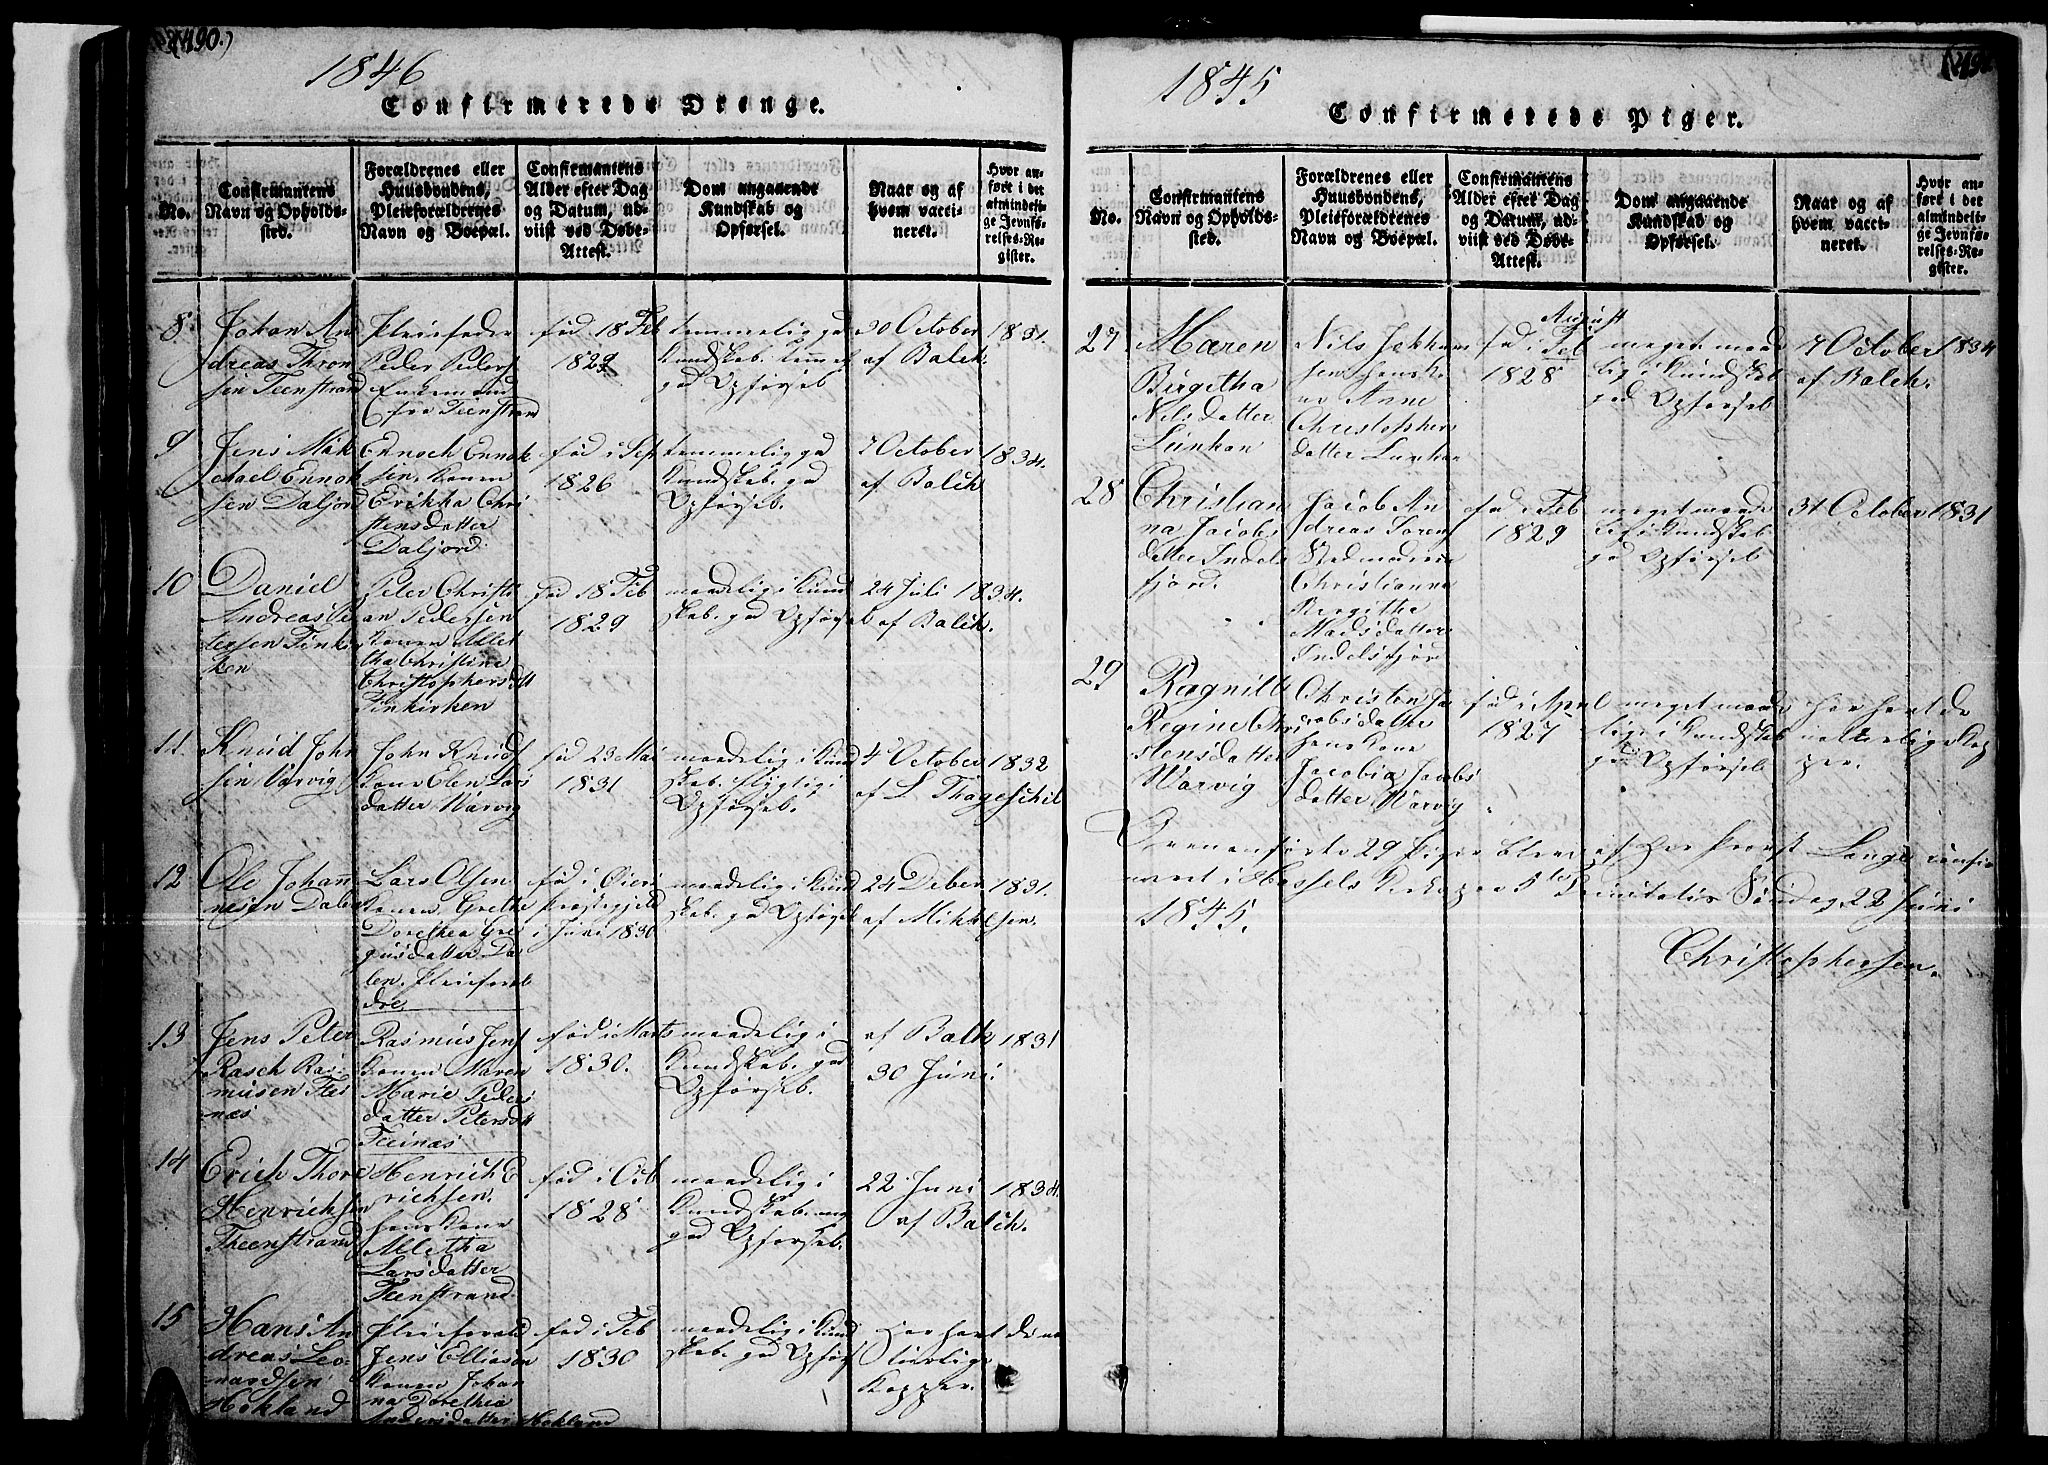 490.)
1846
Confirmerede Drenge.
No.
Confirmantens
Navn og Opholds-
sted.
Forældrenes eller
Huusbondens,
Pleieforældrenes
Navn og Boepæl.
Confirmantens
Alder efter Dag
og Datum, ud-
viist ved Døbe-
Attest.
Dom angaaende
Kundskab og
Opførsel.
Naar og af
hvem vacci-
neret.
Hvor an-
ført i det
almindeli-
ge Jevnfø-
relses-Re-
gister.
8
Johan An
dreas Thron
sen Teenstrand
Pleiefader
Peder Peders
Enkemand
fra Teenstrand
fød 18 Feb
1829
temmelig god
Kundskab. temmel
god Opførsel
30 October 1831.
af Balch.
9
Jens Mik
chael Ennok
sen Daljord
Ennoch Ennok
sen. Konen
Erikka Chri
stensdatter
Daljord.
fød i Sep
1826
temmelig god
Kundskab. god
Opførsel.
7 October 1834.
af Balch
10
Daniel
Andreas Pe
tersen Finkir
ken
Peter Christi
an Pedersen
Konen Allet
tha Christine
Christophersdtt
Finkirken
fød 18 Feb
1829
maadelig i Kund
skab. god Opførsel
24 Juli 1834.
af Balch.
11.
Knud John
sen Varvig
John Knuds
Kone Elen Lars
datter Warvig
fød 23 Mai
1831
maadelig i Kund
skab. flygtig i
Opførsel.
4 October 1832
af L Thageschil
12
Ole Johan
nesen Dalen
Lars Olsen
Konen Grethe
Dorethea Gre
gusdatter Da
len. Pleieforæl
dre.
fød i Øieri
præstegjeld
i Juni 1830
maadelig i Kund
skab. god Opførsel
24 Deber 1831.
af Mikkelsen.
13
Jens Peter
Rasch Ras
musen Flei
næs
Rasmus Jens
Konen Maren
Marie Peders
datter Petersdtt
Fleinæs
fød i Marts
1830.
maadelig i
Kundskab. god
Opførsel.
af Balk 1831
30 Juni.
14
Erich Thore
Henrichsen
Theenstrand
Henrich E
richsen.
hans Kone
Alletha
Larsdatter
Teenstrand.
fød i Oct
1828
maadelig i
Kundskab. og
god Opførsel.
22 Juni 1834.
af Balch.
15
Hans An
dreas Leo-
nardsen
Hokland
Pleieforæld
Jens Elliasen
Konen Johan
na Dorethia
Andersdatter Hokland
fød i Feb
1830
maadelig i Kund
skab. god Opførs
Har havt de na
turlige
Kopper.
1845
Confirmerede Piger.
No.
Confirmantens
Navn og Opholds-
sted.
Forældrenes eller
Huusbondens,
Pleieforældrenes
Navn og Boepæl.
Confirmantens
Alder efter Dag
og Datum, ud-
viist ved Døbe-
Attest.
Dom angaaende
Kundskab og
Opførsel.
Naar og af
hvem vacci-
neret.
Hvor an-
ført i det
almindeli-
ge Jevnfø-
relses-Re-
gister.
27
Maren
Birgitha
Nilsdatter
Lunkan
Nils Johan
sen hans Ko
ne Anne
Christophers
datter Lunkan
August
fød i Feb
1828
meget maade
lig i Kundskab
god Opførsel
7 October 1834
af Balch.
28
Christian
na Jacobs
datter Indels
fjord.
Jacob An
dreas Sørens
Stedmoderen
Christianna
Birgitha
Madsdatter
Indelsfjord
fød i Feb
1829
meget maade
lig i Kundskab
god Opførsel
31 October 1831
29
Ragnild
Regine Chri
stensdatter
Warvig
Christen Ja
cobsdatter
hans Kone
Jacobia Jacobs
datter Warvig
fød i April
1827
meget maade
lig i Kundskab
god Opførsel
har havt de
naturlige Kop
per.
Ovenanførte 29 Piger blev af Her Provst Lange confir
meret i Hassels Kirke paa 5te Trinitatis Søndag 22 Juni
1845.
Christophersen.